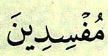 مُفْسِدِينَ